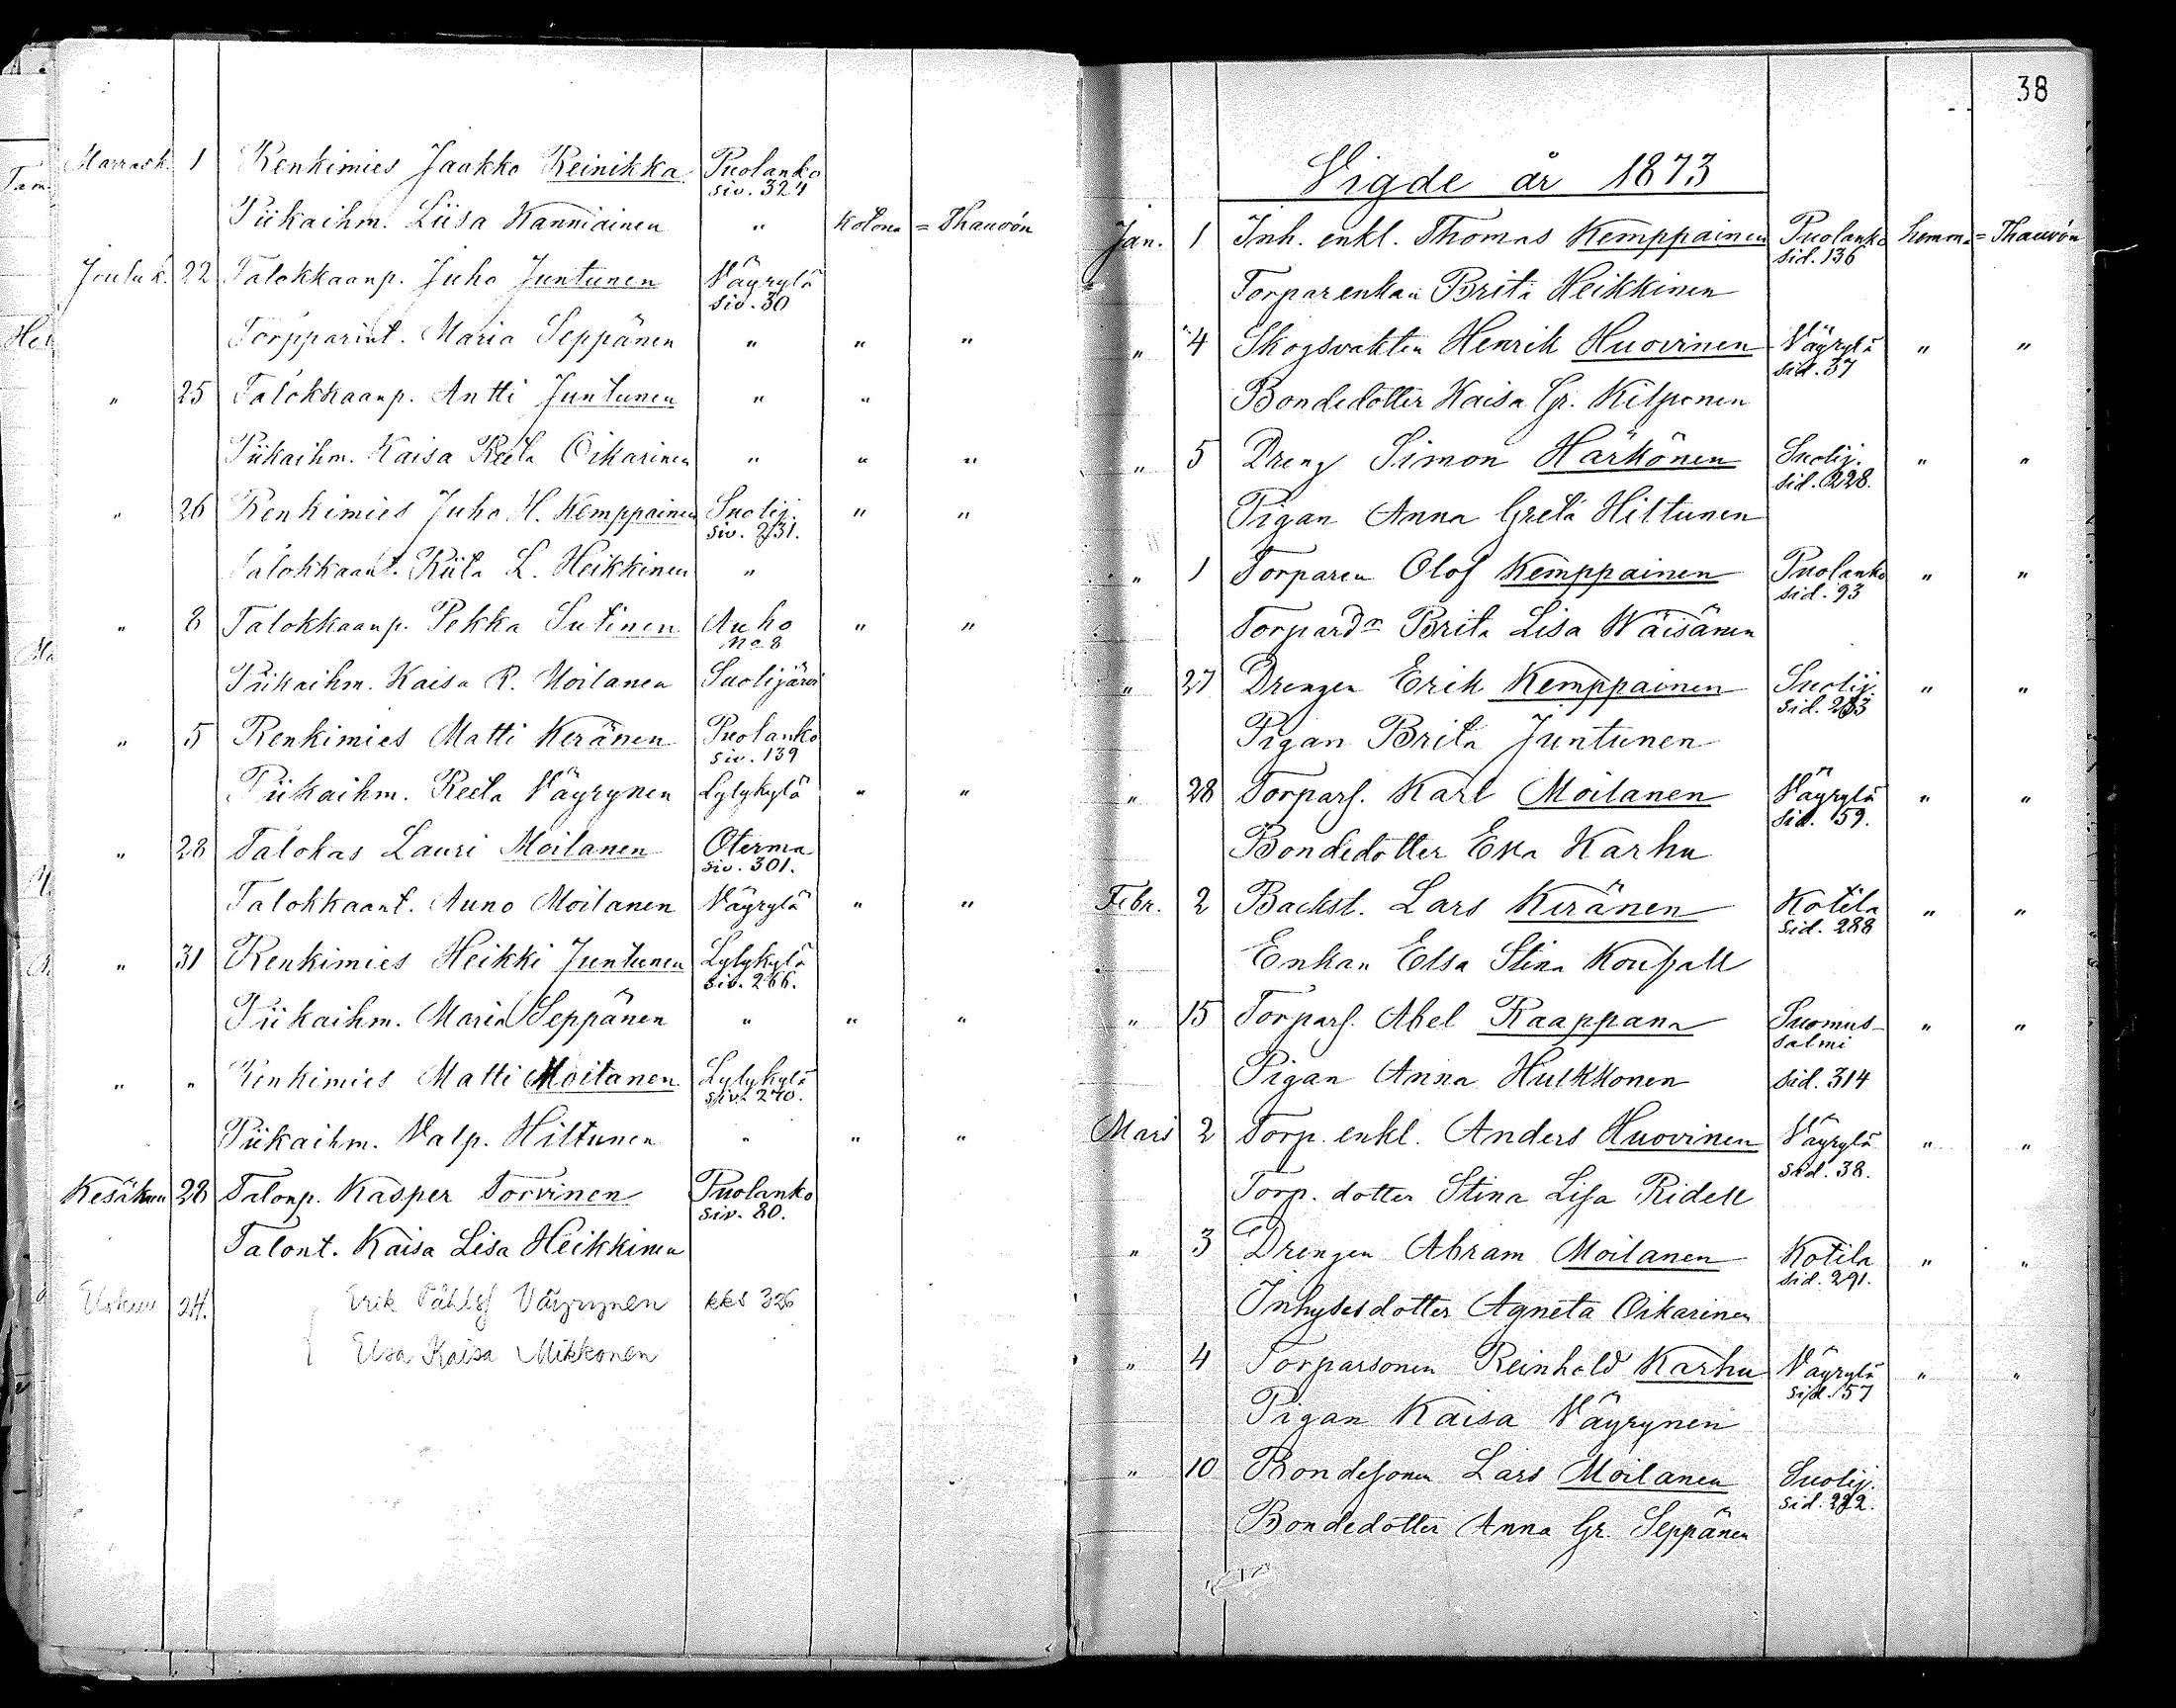 Marrask. 1 Renkimies Jaakko Reinikka Puolanko siv. 324
Piikaihm. Liisa Kanniainen " kotona = Thauvón
Jouluk. 22 Talokkaanp. Juho Juntunen Väyrylä siv. 30
Torpparint. Maria Seppänen " " "
" 25 Talokkaanp. Antti Juntunen " "
Piikaihm. Kaisa Reeta Oikarinen " " "
" 26 Renkimies Juho H. Kemppainen Suolij. siv. 231. " "
Talokkaant. Riita L. Heikkinen "
" 8 Talokkaanp. Pekka Sutinen Auho No 8 " "
Piikaihm. Kaisa R. Moilanen Suolijärvi
" 5 Renkimies Matti Keränen Puolanko siv. 139
Piikaihm. Reeta Väyrynen Lylykylä " "
" 28 Talokas Lauri Moilanen Oterma siv. 301.
Talokkaant. Auno Moilanen Väyrylä " "
" 31 Renkimies Heikki Juntunen Lylykylä siv. 266.
Piikaihm. Maria Seppänen " " "
" " Renkimies Matti Moilanen Lylykylä siv. 270.
Piikaihm. Valp. Hiltunen " " "
Kesäkuu 28 Talonp. Kasper Torvinen Puolanko siv. 80.
Talont. Kaisa Lisa Heikkinen
Elokuu 24. Erik Påhlsf Väyrynen kks 326
Elsa Kaisa Mikkonen
38
Vigde år 1873
Jan. 1 Inh. enkl. Thomas Kemppainen Puolanko sid. 136 hemma = Thauvón
Torparenkan Brita Heikkinen
" 4 Skogsvakten Henrik Huovinen Väyrylä sid. 37 " "
Bondedotter Kaisa Gr. Kilponen
" 5 Dreng Simon Härkönen Suolij. sid. 228. " "
Pigan Anna Greta Hiltunen
" 1 Torparen Olof Kemppainen Puolanko sid. 93 " "
Torpardr Brita Lisa Wäisänen
" 27 Drengen Erik Kemppainen Suolij. sid. " "
Pigan Brita Juntunen
" 28 Torpars. Karl Moilanen Väyrylä sid. 59. " "
Bondedotter Eva Karhu
Febr. 2 Backst. Lars Keränen Kotila sid. 288 " "
Enkan Elsa Stina
" 15 Torpars. Abel Raappana Suomussalmi " "
Pigan Anna Hulkkonen sid. 314
Mars 2 Torp. enkl. Anders Huovinen Väyrylä sid. 38. " "
Torp. dotter Stina Lisa Ridell
" 3 Drengen Abram Moilanen Kotila sid. 291. " "
Inhysesdotter Agneta Oikarinen
" 4 Torparsonen Reinhold Karhu Väyrylä sid. 57 " "
Pigan Kaisa Väyrynen
" 10 Bondesonen Lars Moilanen Suolij. sid. 222.
Bondedotter Anna Gr. Seppänen